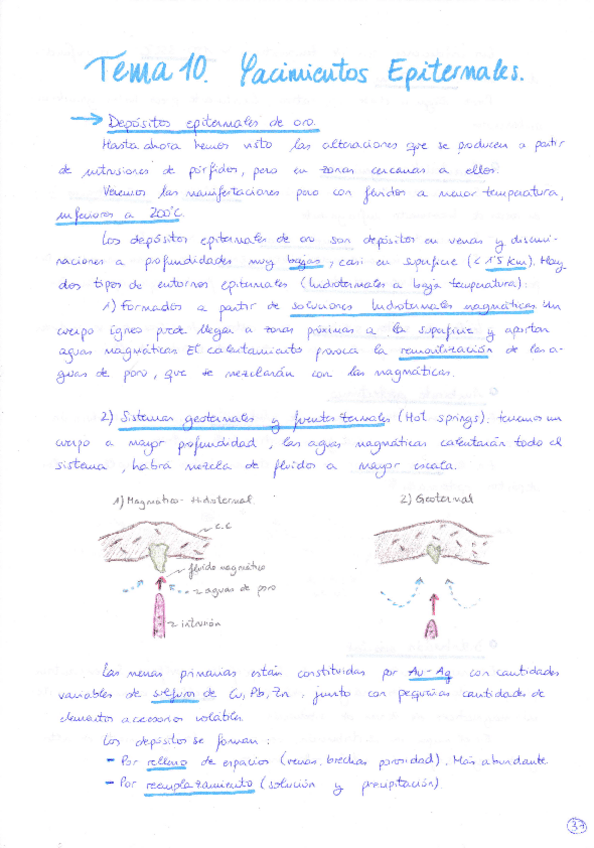 Tema 10. Yacimientos Epitermales.
→ Depósitos epitermales de oro.
Hasta ahora hemos visto las alteraciones que se producen a partir
de intrusiones de pórfidos, pero en zonas cercanas a ellos.
Veremos las manifestaciones pero con fluidos a menor temperatura,
inferiores a 200°C.
Los depósitos epitermales de oro son depósitos en venas y disemi-
naciones a profundidades muy bajas, casi en superficie (< 1'5 Km). Hay
dos tipos de entornos epitermales (hidrotermales a baja temperatura):
1) Formados a partir de soluciones hidrotermales magmáticas. Un
cuerpo ígneo puede llegar a zonas próximas a la superficie y aportan
aguas magmáticas. El calentamiento provoca la removilización de las a-
guas de poro, que se mezclarán con las magmáticas.
2) Sistemas geotermales y fuentes termales (Hot springs): tenemos un
cuerpo a mayor profundidad, las aguas magmáticas calentarán todo el
sistema, habrá mezcla de fluidos a mayor escala.
1) Magmático-Hidrotermal
2) Geotermal
C.C
fluido magmático
aguas de poro
intrusión
Las menas primarias están constituidas por Au-Ag con cantidades
variables de sulfuros de Cu, Pb, Zn, junto con pequeñas cantidades de
elementos accesorios volátiles.
Los depósitos se forman:
- Por relleno de espacios (venas, brechas porosidad). Más abundante
- Por reemplazamiento (solución y precipitación)
37